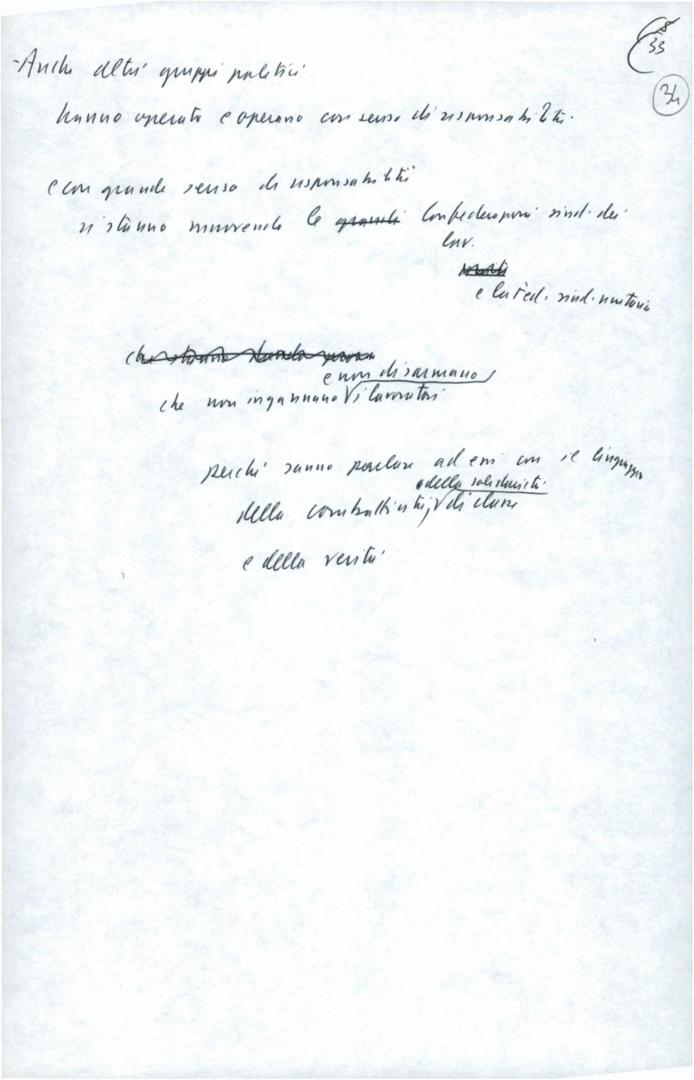 33
34
- Anche altri gruppi politici
hanno operato e operano con senso di responsabilità.
e con grande senso di responsabilità
si stanno muovendo le grandi Confederazioni sind. dei
lav.
e la Fed. sind. unitaria
che stanno dando prova
e non disarmano
che non ingannano i lavoratori
perché sanno parlare ad essi con il linguaggio
e della solidarietà
della combattività, di classe
e della verità